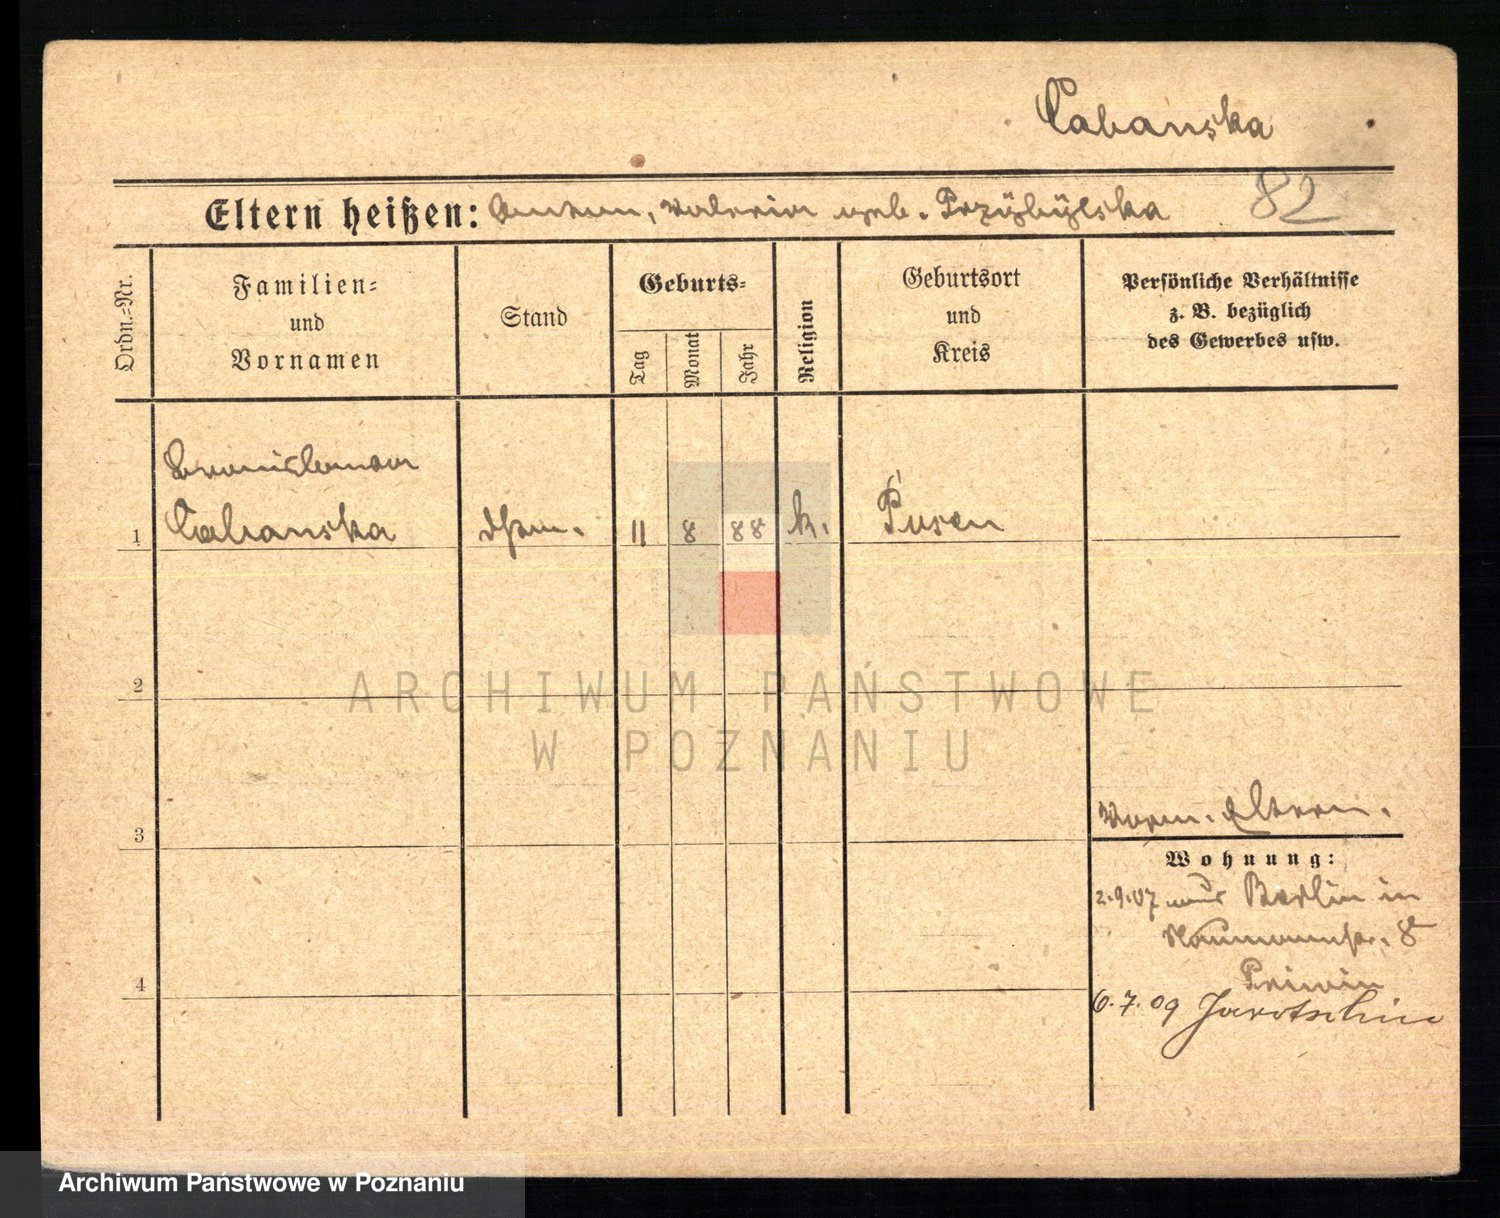 Cabanska
82
Eltern heißen: Anton, Valeria geb. Przÿbÿlska
Ordn.=Nr.
Familien=
und
Vornamen
Stand
Geburts=
Tag
Monat
Jahr
Religion
Geburtsort
und
Kreis
Persönliche Verhältnisse
z. B. bezüglich
des Gewerbes usw.
Bronislawa
1 Cabanska 11 8 88 k. Posen
2
3
Eltern.
Wohnung:
2.9.07 aus Berlin in
Naumannstr. 8
4
6.7.09 Jarotschin
ARCHIWUM PAŃSTWOWE
W POZNANIU
Archiwum Państwowe w Poznaniu